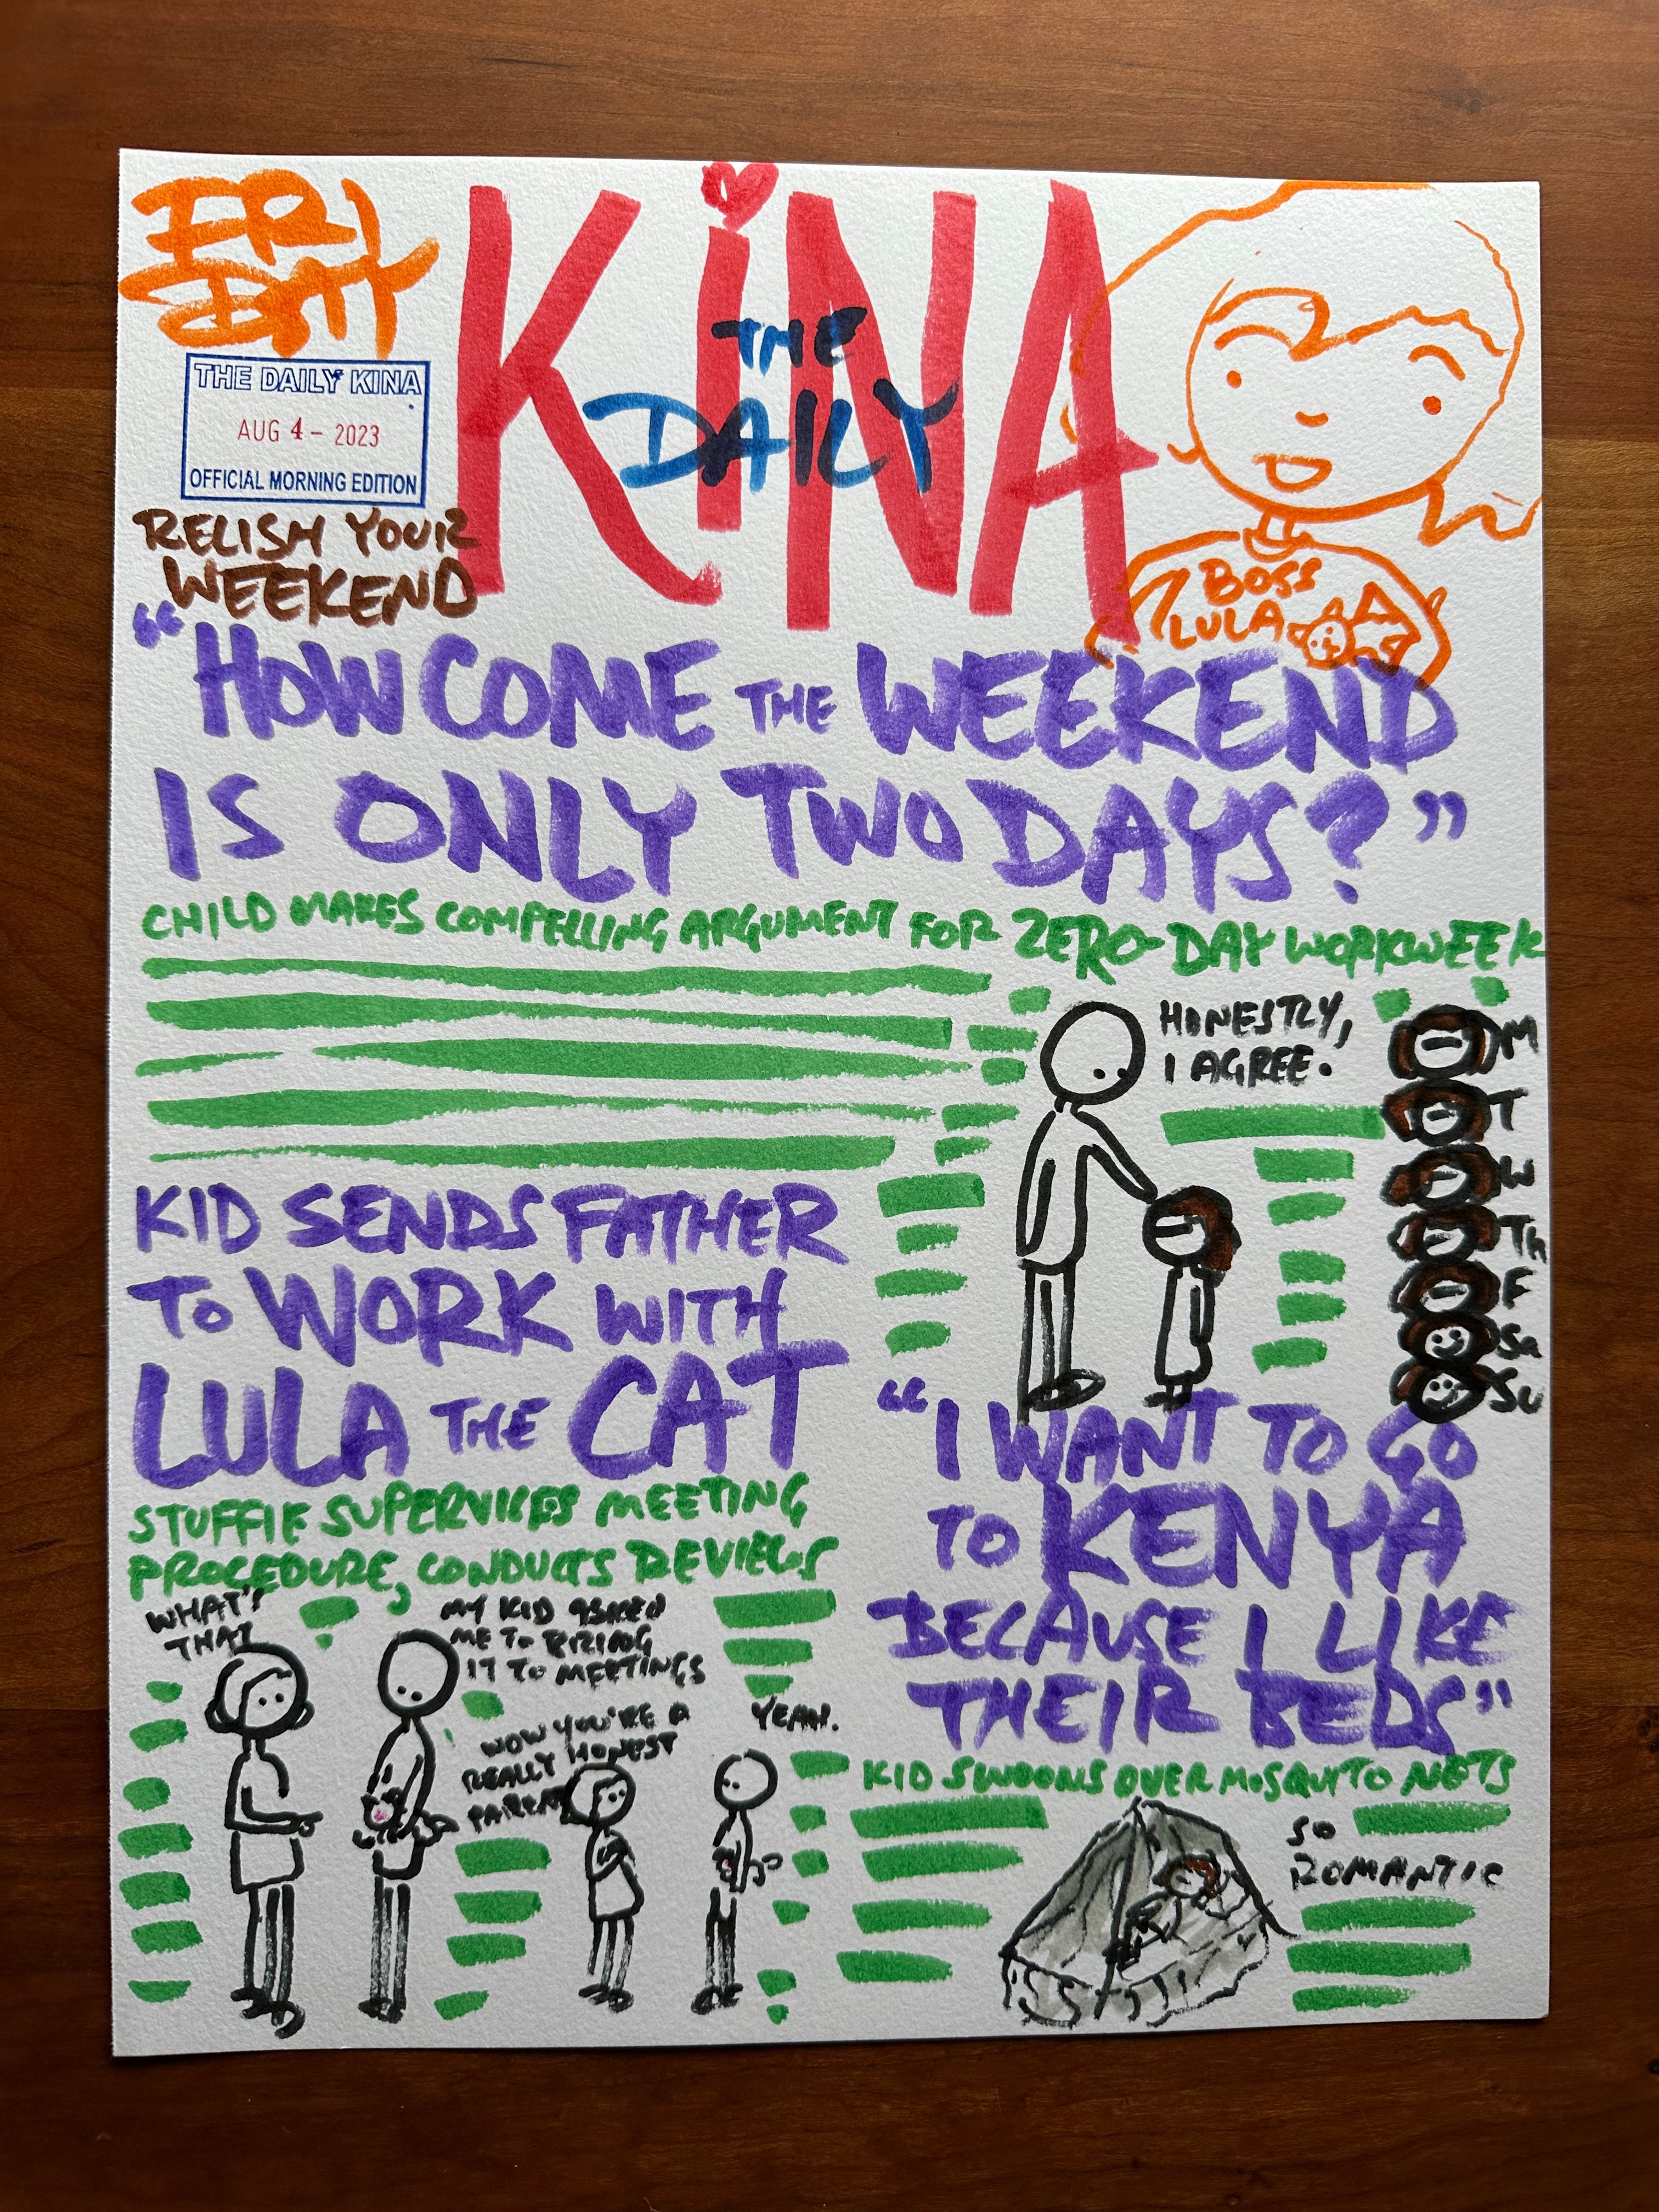 FRI
DAY
THE DAILY KINA
AUG 4 - 2023
OFFICIAL MORNING EDITION
RELISH YOUR
WEEKEND
KiNA
THE
DAILY
BOSS
LULA
"HOW COME THE WEEKEND
IS ONLY TWO DAYS?"
CHILD MAKES COMPELLING ARGUMENT FOR ZERO-DAY WORKWEEK
HONESTLY,
I AGREE.
M
T
W
Th
F
Sa
Su
KID SENDS FATHER
TO WORK WITH
LULA THE CAT
STUFFIE SUPERVISES MEETING
PROCEDURE, CONDUCTS REVIEWS
WHAT'S
THAT
MY KID ASKED
ME TO BRING
IT TO MEETINGS
WOW YOU'RE A
REALLY HONEST
PARENT
YEAH.
"I WANT TO GO
TO KENYA
BECAUSE I LIKE
THEIR BEDS"
KID SWOONS OVER MOSQUITO NETS
SO
ROMANTIC